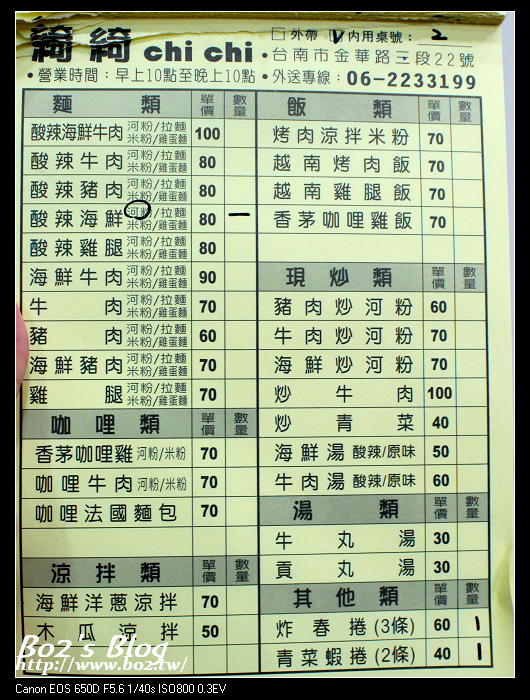 綺綺 chi chi
外帶 V 內用桌號: 2
•台南市金華路三段22號
•營業時間:早上10點至晚上10點 •外送專線:06-2233199
麵類 單價 數量
酸辣海鮮牛肉 河粉/拉麵 米粉/雞蛋麵 100
酸辣牛肉 河粉/拉麵 米粉/雞蛋麵 80
酸辣豬肉 河粉/拉麵 米粉/雞蛋麵 80
酸辣海鮮 河粉/拉麵 米粉/雞蛋麵 80 一
酸辣雞腿 河粉/拉麵 米粉/雞蛋麵 80
海鮮牛肉 河粉/拉麵 米粉/雞蛋麵 90
牛肉 河粉/拉麵 米粉/雞蛋麵 70
豬肉 河粉/拉麵 米粉/雞蛋麵 60
海鮮豬肉 河粉/拉麵 米粉/雞蛋麵 70
雞腿 河粉/拉麵 米粉/雞蛋麵 70
咖哩類 單價 數量
香茅咖哩雞 河粉/米粉 70
咖哩牛肉 河粉/米粉 70
咖哩法國麵包 70
涼拌類 單價 數量
海鮮洋蔥涼拌 70
木瓜涼拌 50
飯類 單價 數量
烤肉涼拌米粉 70
越南烤肉飯 70
越南雞腿飯 70
香茅咖哩雞飯 70
現炒類 單價 數量
豬肉炒河粉 60
牛肉炒河粉 70
海鮮炒河粉 70
炒牛肉 100
炒青菜 40
海鮮湯 酸辣/原味 50
牛肉湯 酸辣/原味 60
湯類 單價 數量
牛丸湯 30
貢丸湯 30
其他類 單價 數量
炸春捲(3條) 60 1
青菜蝦捲(2條) 40 1
Bo2's Blog
http://www.bo2.tw/
Canon EOS 650D F5.6 1/40s ISO800 0.3EV